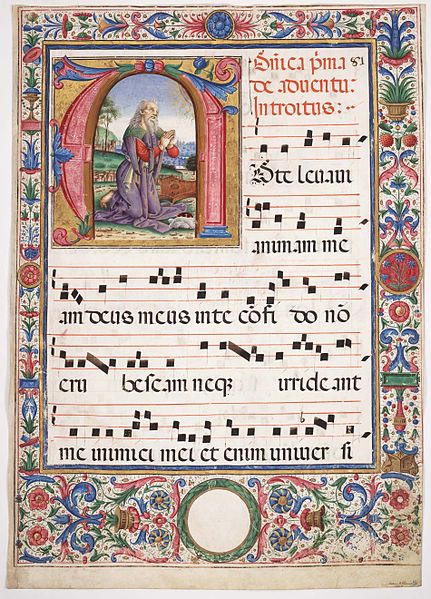 Dñica p̃ma 81
de aduentu.
Introitus:
A
D te leuaui
animam me
am deus meus in te cõfi do nõ
eru bescam neqʒ irrideant
me inimici mei et enim uniuer si